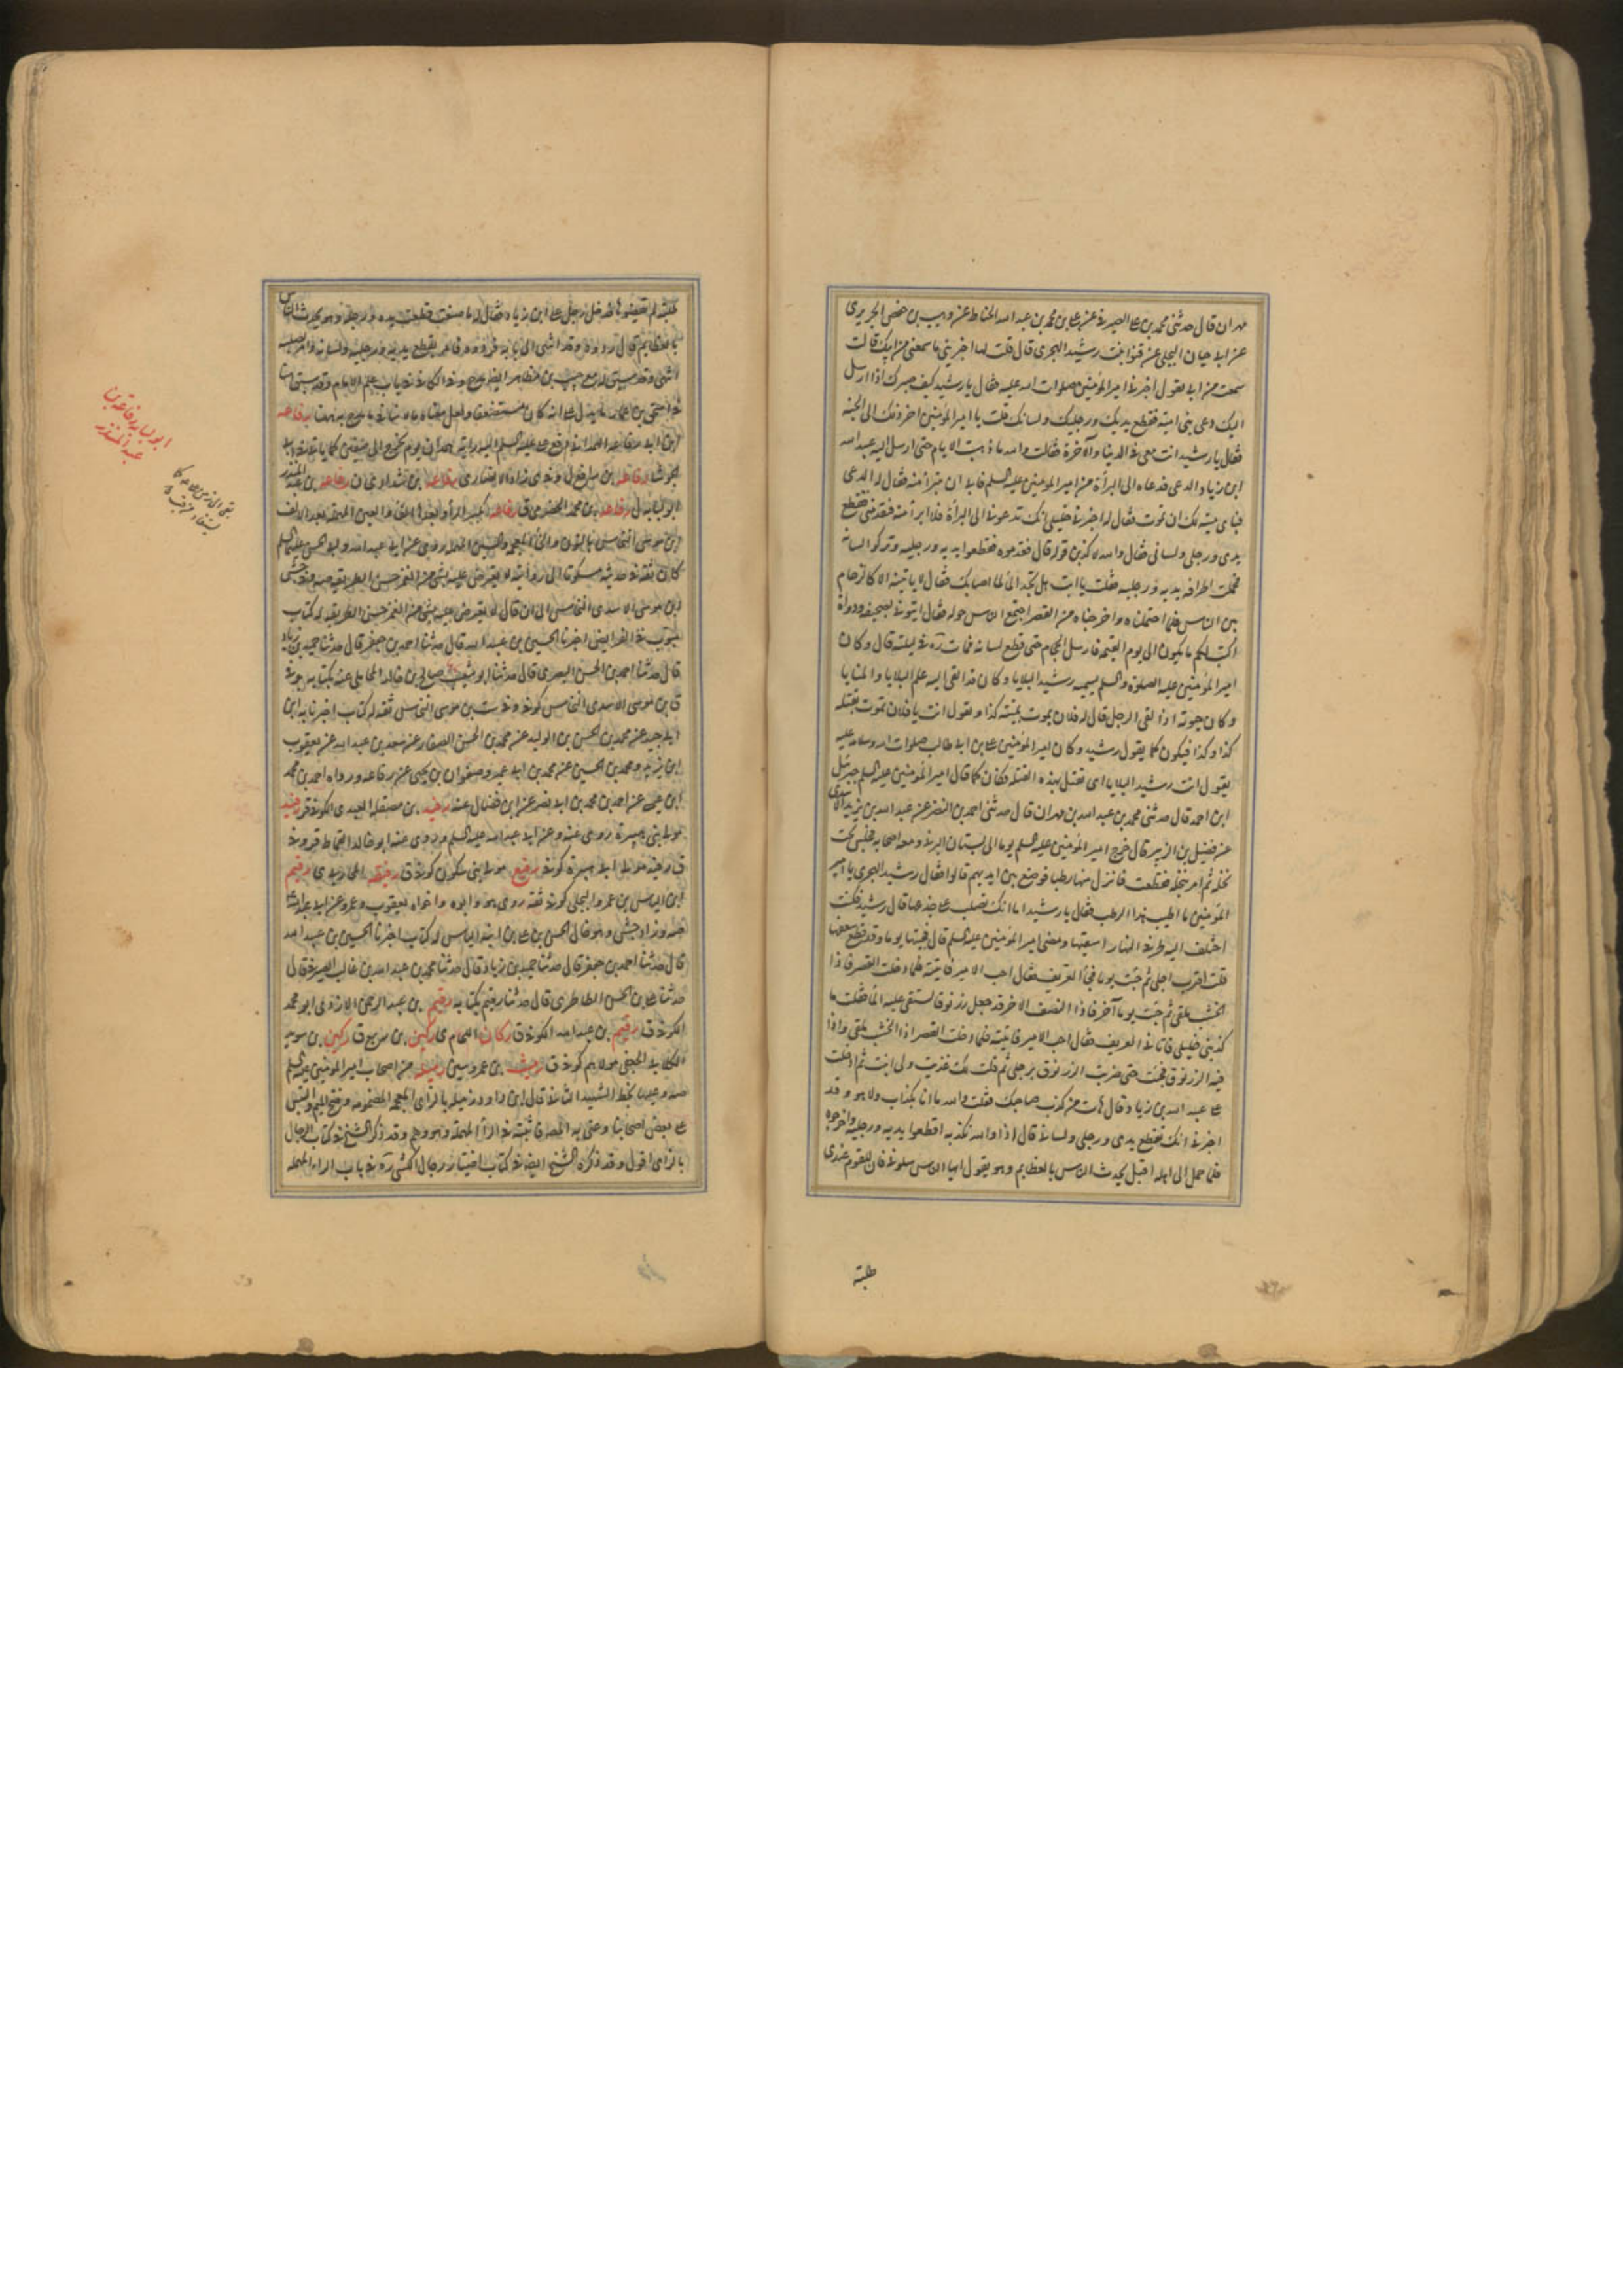 مهران قال حدثنى محمد بن على الصيرفى عن على بن محمد بن عبد الله الحناط عن وهيب بن حفص الجريرى
عن ابى حيان البجلى عن قنوا بنت رشيد الهجرى قال قلت لها اخبرينى ما سمعتى من ابيك قالت
سمعت من ابى يقول اخبرنى امير المؤمنين صلوات الله عليه فقال يا رشيد كيف صبرك اذا ارسل
اليك دعى بنى امية فقطع يديك ورجليك ولسانك قلت يا امير المؤمنين اخر ذلك الى الجنة
فقال يا رشيد انت معى فى الدنيا والآخرة فقالت والله ما ذهبت الايام حتى ارسل اليه عبيد الله
ابن زياد الدعى فدعاه الى البرأة من امير المؤمنين عليه السلم فابى ان يتبرأ منه فقال له الدعى
فباى ميتة لك ان تموت فقال له اخبرنى خليلى انك تدعونى الى البرأة فلا ابرأ منه فتقدمنى فتقطع
يدى ورجلى ولسانى فقال والله لاكذبن قوله قال فقدموه فقطعوا يديه ورجليه وتركوا لسانه
فحملت اطرافه يديه ورجليه فقلت يا ابت هل تجد ألما لما اصابك فقال لا يا بنية الا كالزحام
بين الناس فلما احتملناه واخرجناه من القصر اجتمع الناس حوله فقال ايتونى بصحيفة ودواة
اكتب لكم ما يكون الى يوم القيمة فارسل الحجام حتى قطع لسانه فمات ره فى ليلته قال وكان
امير المؤمنين عليه الصلوة والسلم يسميه رشيد البلايا وكان قد القى اليه علم البلايا والمنايا
وكان حيوته اذا لقى الرجل قال له فلان يموت بميتة كذا ويقول انت يا فلان تموت بقتلة
كذا وكذا فيكون كما يقول رشيد وكان امير المؤمنين على بن ابى طالب صلوات الله وسلامه عليه
يقول انت رشيد البلايا اى تقتل بهذه القتلة فكان كما قال امير المؤمنين عليه السلم جبرئيل
ابن احمد قال حدثنى محمد بن عبد الله بن مهران قال حدثنى احمد بن النضر عن عبد الله بن يزيد الاسدى
عن فضيل بن الزبير قال خرج امير المؤمنين عليه السلم يوما الى بستان البرنى ومعه اصحابه فجلس تحت
نخلة ثم امر بنخلة فقطعت فانزل منها رطبا فوضع بين ايديهم قالوا فقال رشيد الهجرى يا امير
المؤمنين ما اطيب هذا الرطب فقال يا رشيد اما انك تصلب على جذعها قال رشيد فكنت
اختلف اليها طرفى النهار اسقيها ومضى امير المؤمنين عليه السلم قال فجئتها يوما وقد قطع سعفها
قلت اقترب اجلى ثم جئت يوما فجأ العريف فقال اجب الامير فاتيته فلما دخلت القصر فاذا
الخشب ملقى ثم جئت يوما آخر فاذا النصف الاخر قد جعل زرنوقا يستقى عليه الماء فقلت ما
كذبنى خليلى فاتانى العريف فقال اجب الامير فاتيته فلما دخلت القصر اذا الخشب ملقى واذا
فيه الزرنوق فجئت حتى ضربت الزرنوق برجلى ثم قلت لك غذيت ولى انبت ثم ادخلت
على عبيد الله بن زياد قال هات من كذب صاحبك فقلت والله ما انا بكذاب ولا هو وقد
اخبرنى انك تقطع يدى ورجلى ولسانى قال اذا والله نكذبه اقطعوا يديه ورجليه واخرجوه
فلما حمل الى اهله اقبل يحدث الناس بالعظايم وهو يقول ايها الناس سلونى فان للقوم عندى
طلبة
طلبة لم يقضوها فدخل رجل على ابن زياد فقال له ما صنعت قطعت يده ورجله وهو يحدث الناس
بالعظايم قال ردوه وقد انتهى الى بابه فردوه فامر بقطع يديه ورجليه ولسانه وامر بصلبه
ابن ابى رفاعة
الجوشا رفاعة بن
ابو لبابة ل رفاعة بن محمد الحضرمى ق رفاعة بكسر الرأ والفأ والعين المهملة بعد الالف
ابن موسى النخاس بالنون والخأ المعجمة والسين المهملة روى عن ابى عبد الله وابى الحسن عليهما السلم
كان ثقة فى حديثه مسكونا الى روايته لا يعترض عليه بشئ من الغمز حسن الطريقة صه وزاد جش
ابن موسى الاسدى النخاس الى ان قال لا يعترض عليه بشئ من الغمز حسن الطريقة له كتاب
مبوب فى الفرايض اخبرنا الحسين بن عبيد الله قال حدثنا احمد بن جعفر قال حدثنا حميد بن زياد
قال حدثنا احمد بن الحسن البصرى قال حدثنا ابو شعيب صالح بن خالد المحاملى عنه بكتابه وفى
ق ابن موسى الاسدى النخاس كوفى وفى ست بن موسى النخاس ثقة له كتاب اخبرنا به ابن
ابى جيد عن محمد بن الحسن بن الوليد عن محمد بن الحسن الصفار عن سعد بن عبد الله عن يعقوب
ابن يزيد ومحمد بن الحسين عن محمد بن ابى عمير وصفوان بن يحيى عن رفاعة ورواه احمد بن محمد
ابن عيسى عن احمد بن محمد بن ابى نصر عن ابن فضال عنه رفيد بن مصقلة العبدى الكوفى ق رفيد
مولى بنى هبيرة روى عنه وعن ابى عبد الله عليه السلم وروى عنه ابو خالد القماط ق وفى
ق رفيد مولى ابى هبيرة كوفى رفيع مولى بنى سكون كوفى ق
ابن الياس بن عمرو البجلى كوفى ثقة روى هو وابوه واخواه يعقوب وعمرو عن ابى عبد الله
صه وزاد جش وهو خال الحسن بن على بن ابنة الياس له كتاب اخبرنا الحسين بن عبيد الله
قال حدثنا احمد بن جعفر قال حدثنا حميد بن زياد قال حدثنا محمد بن عبد الله بن غالب الصيرفى قال
حدثنا على بن الحسن الطاطرى قال حدثنا رقيم بكتابه رقيم بن عبد الرحمن الازدى ابو محمد
الكوفى ق رقيم بن عبد الله الكوفى ق ركان الحمامى ى ركين بن ربيع ق ركين بن سويد
الكلابى الجعفى مولاهم كوفى ق رميث بن عمرو سين رميلة من اصحاب امير المؤمنين عليه السلم
صه وعليها بخط الشهيد الثانى قال ابن داود زميلة بالزاى المعجمة المضمومة وفتح الميم والتبس
على بعض اصحابنا وعنى به المصنف فاثبته فى الرأ المهملة وهو وهم وقد ذكر الشيخ فى كتاب الرجال
بالزاى اقول وقد ذكره الشيخ ايضا فى كتاب اختيار رجال الكشى ره فى باب الراء المهملة
ابو لبابة رفاعة بن
عبد المنذر